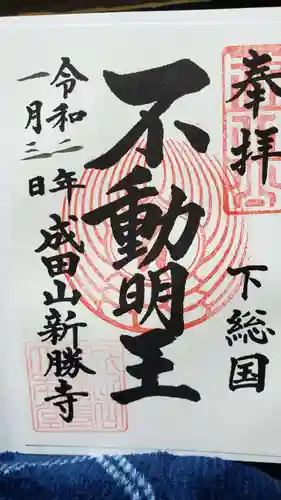 奉拝
下総国
不動明王
令和二年
一月三日
成田山新勝寺